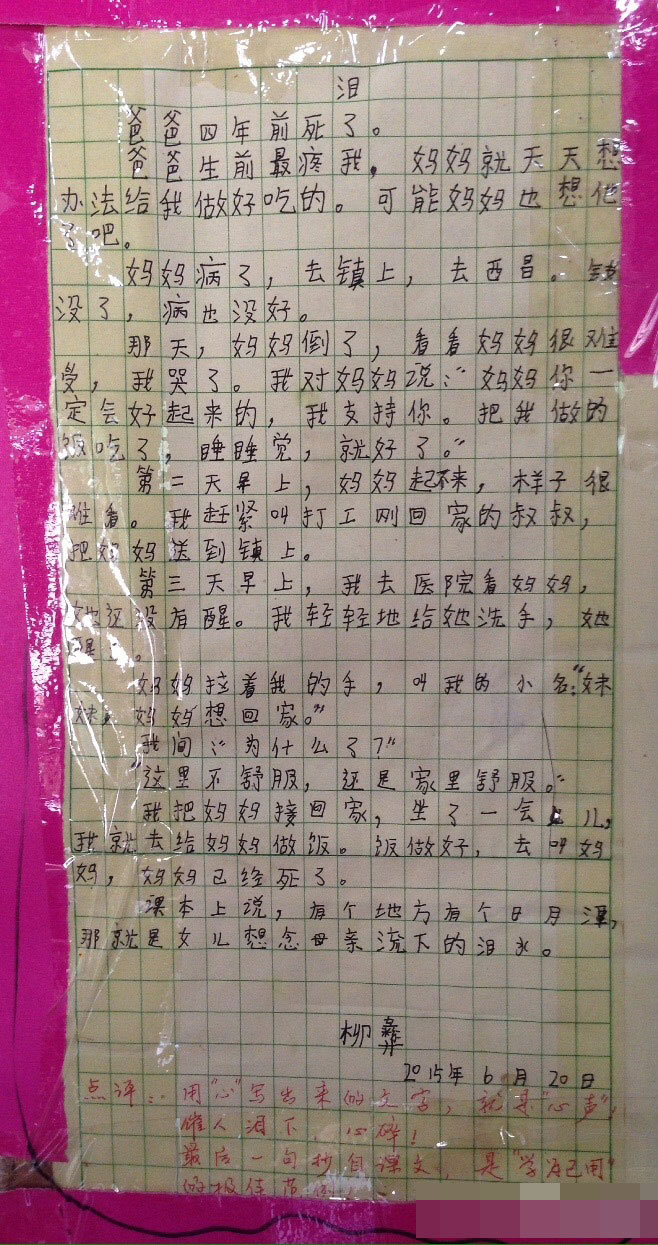 泪
爸爸四年前死了。
爸爸生前最疼我,妈妈就天天想
办法给我做好吃的。可能妈妈也想他
了吧。
妈妈病了,去镇上,去西昌。钱
没了,病也没好。
那天,妈妈倒了,看看妈妈很难
受,我哭了。我对妈妈说:“妈妈你一
定会好起来的,我支持你。把我做的
饭吃了,睡睡觉,就好了。”
第二天早上,妈妈起不来,样子很
难看。我赶紧叫打工刚回家的叔叔,
把妈妈送到镇上。
第三天早上,我去医院看妈妈,
她还没有醒。我轻轻地给她洗手,她
醒了。
妈妈拉着我的手,叫我的小名:“妹
妹,妈妈想回家。”
我问:“为什么了?”
“这里不舒服,还是家里舒服。”
我把妈妈接回家,坐了一会儿,
我就去给妈妈做饭。饭做好,去叫妈
妈,妈妈已经死了。
课本上说,有个地方有个日月潭,
那就是女儿想念母亲流下的泪水。
柳彝
2015年6月20日
点评:用“心”写出来的文字,就是“心声”,
催人泪下、心碎!
最后一句抄自课文,是“学为己用”
的极佳范例